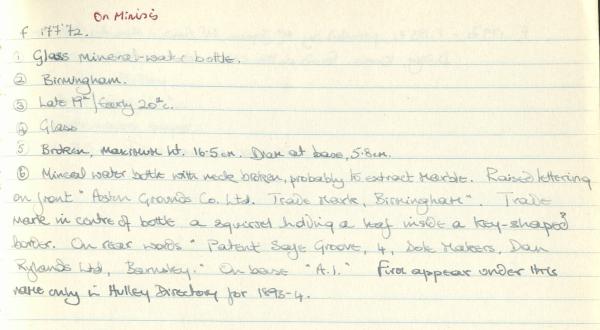 On Minisis
F 177'72.
① Glass mineral-water bottle.
② Birmingham.
③ Late 19th/Early 20th c.
④ Glass
5 Broken, maximum ht. 16.5cm. Diam at base, 5.8cm.
⑥ Mineral water bottle with neck broken, probably to extract marble. Raised lettering
on front "Aston Grounds Co. Ltd. Trade Mark, Birmingham". Trade
mark in centre of bottle a squirrel holding a leaf inside a key-shaped?
border. On rear words "Patent Safe Groove, 4, Sole Makers, Dan
Rylands Ltd, Barnsley." On base "A.1." Firm appear under this
name only in Hulley Directory for 1893-4.